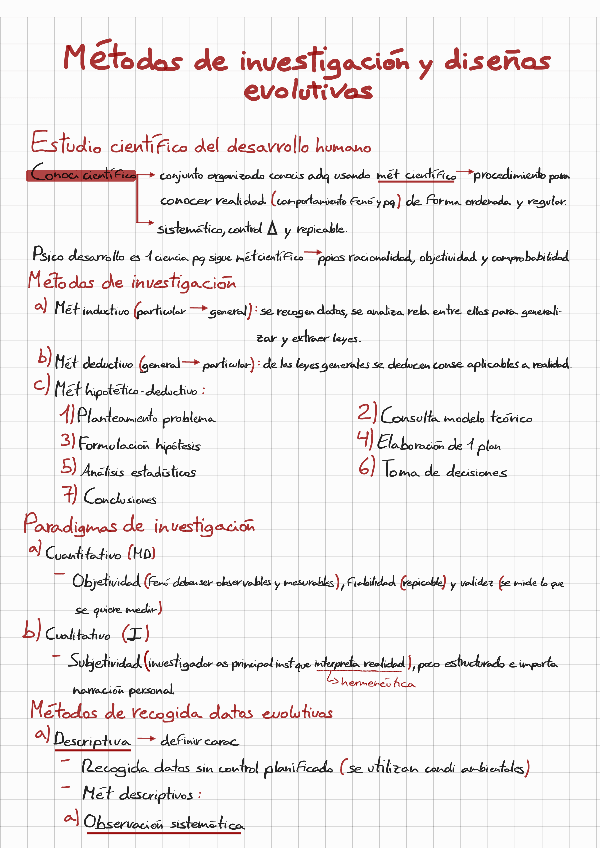 Métodos de investigación y diseños
evolutivos
Estudio científico del desarrollo humano
Conoci científico → conjunto organizado conocis adq usando mét científico → procedimiento para
conocer realidad (comportamiento Fenó y pq) de forma ordenada y regular.
sistemático, control Δ y repicable.
Psico desarrollo es 1 ciencia pq sigue mét científico → ppios racionalidad, objetividad y comprobabilidad
Métodos de investigación
a) Mét inductivo (particular → general): se recogen datos, se analiza rela entre ellos para generali-
zar y extraer leyes.
b) Mét deductivo (general → particular): de las leyes generales se deducen conse aplicables a realidad
c) Mét hipotético-deductivo:
1) Planteamiento problema 2) Consulta modelo teórico
3) Formulación hipótesis 4) Elaboración de 1 plan
5) Análisis estadísticos 6) Toma de decisiones
7) Conclusiones
Paradigmas de investigación
a) Cuantitativo (MD)
- Objetividad (Fenó deben ser observables y mesurables), Fiabilidad (repicable) y validez (se mide lo que
se quiere medir)
b) Cualitativo (I)
- Subjetividad (investigador as principal inst que interpreta realidad), poco estructurado e importa
↳ hermeneútica
narración personal
Métodos de recogida datos evolutivos
a) Descriptiva → definir carac
- Recogida datos sin control planificado (se utilizan condi ambientales)
- Mét descriptivos:
a) Observación sistemática